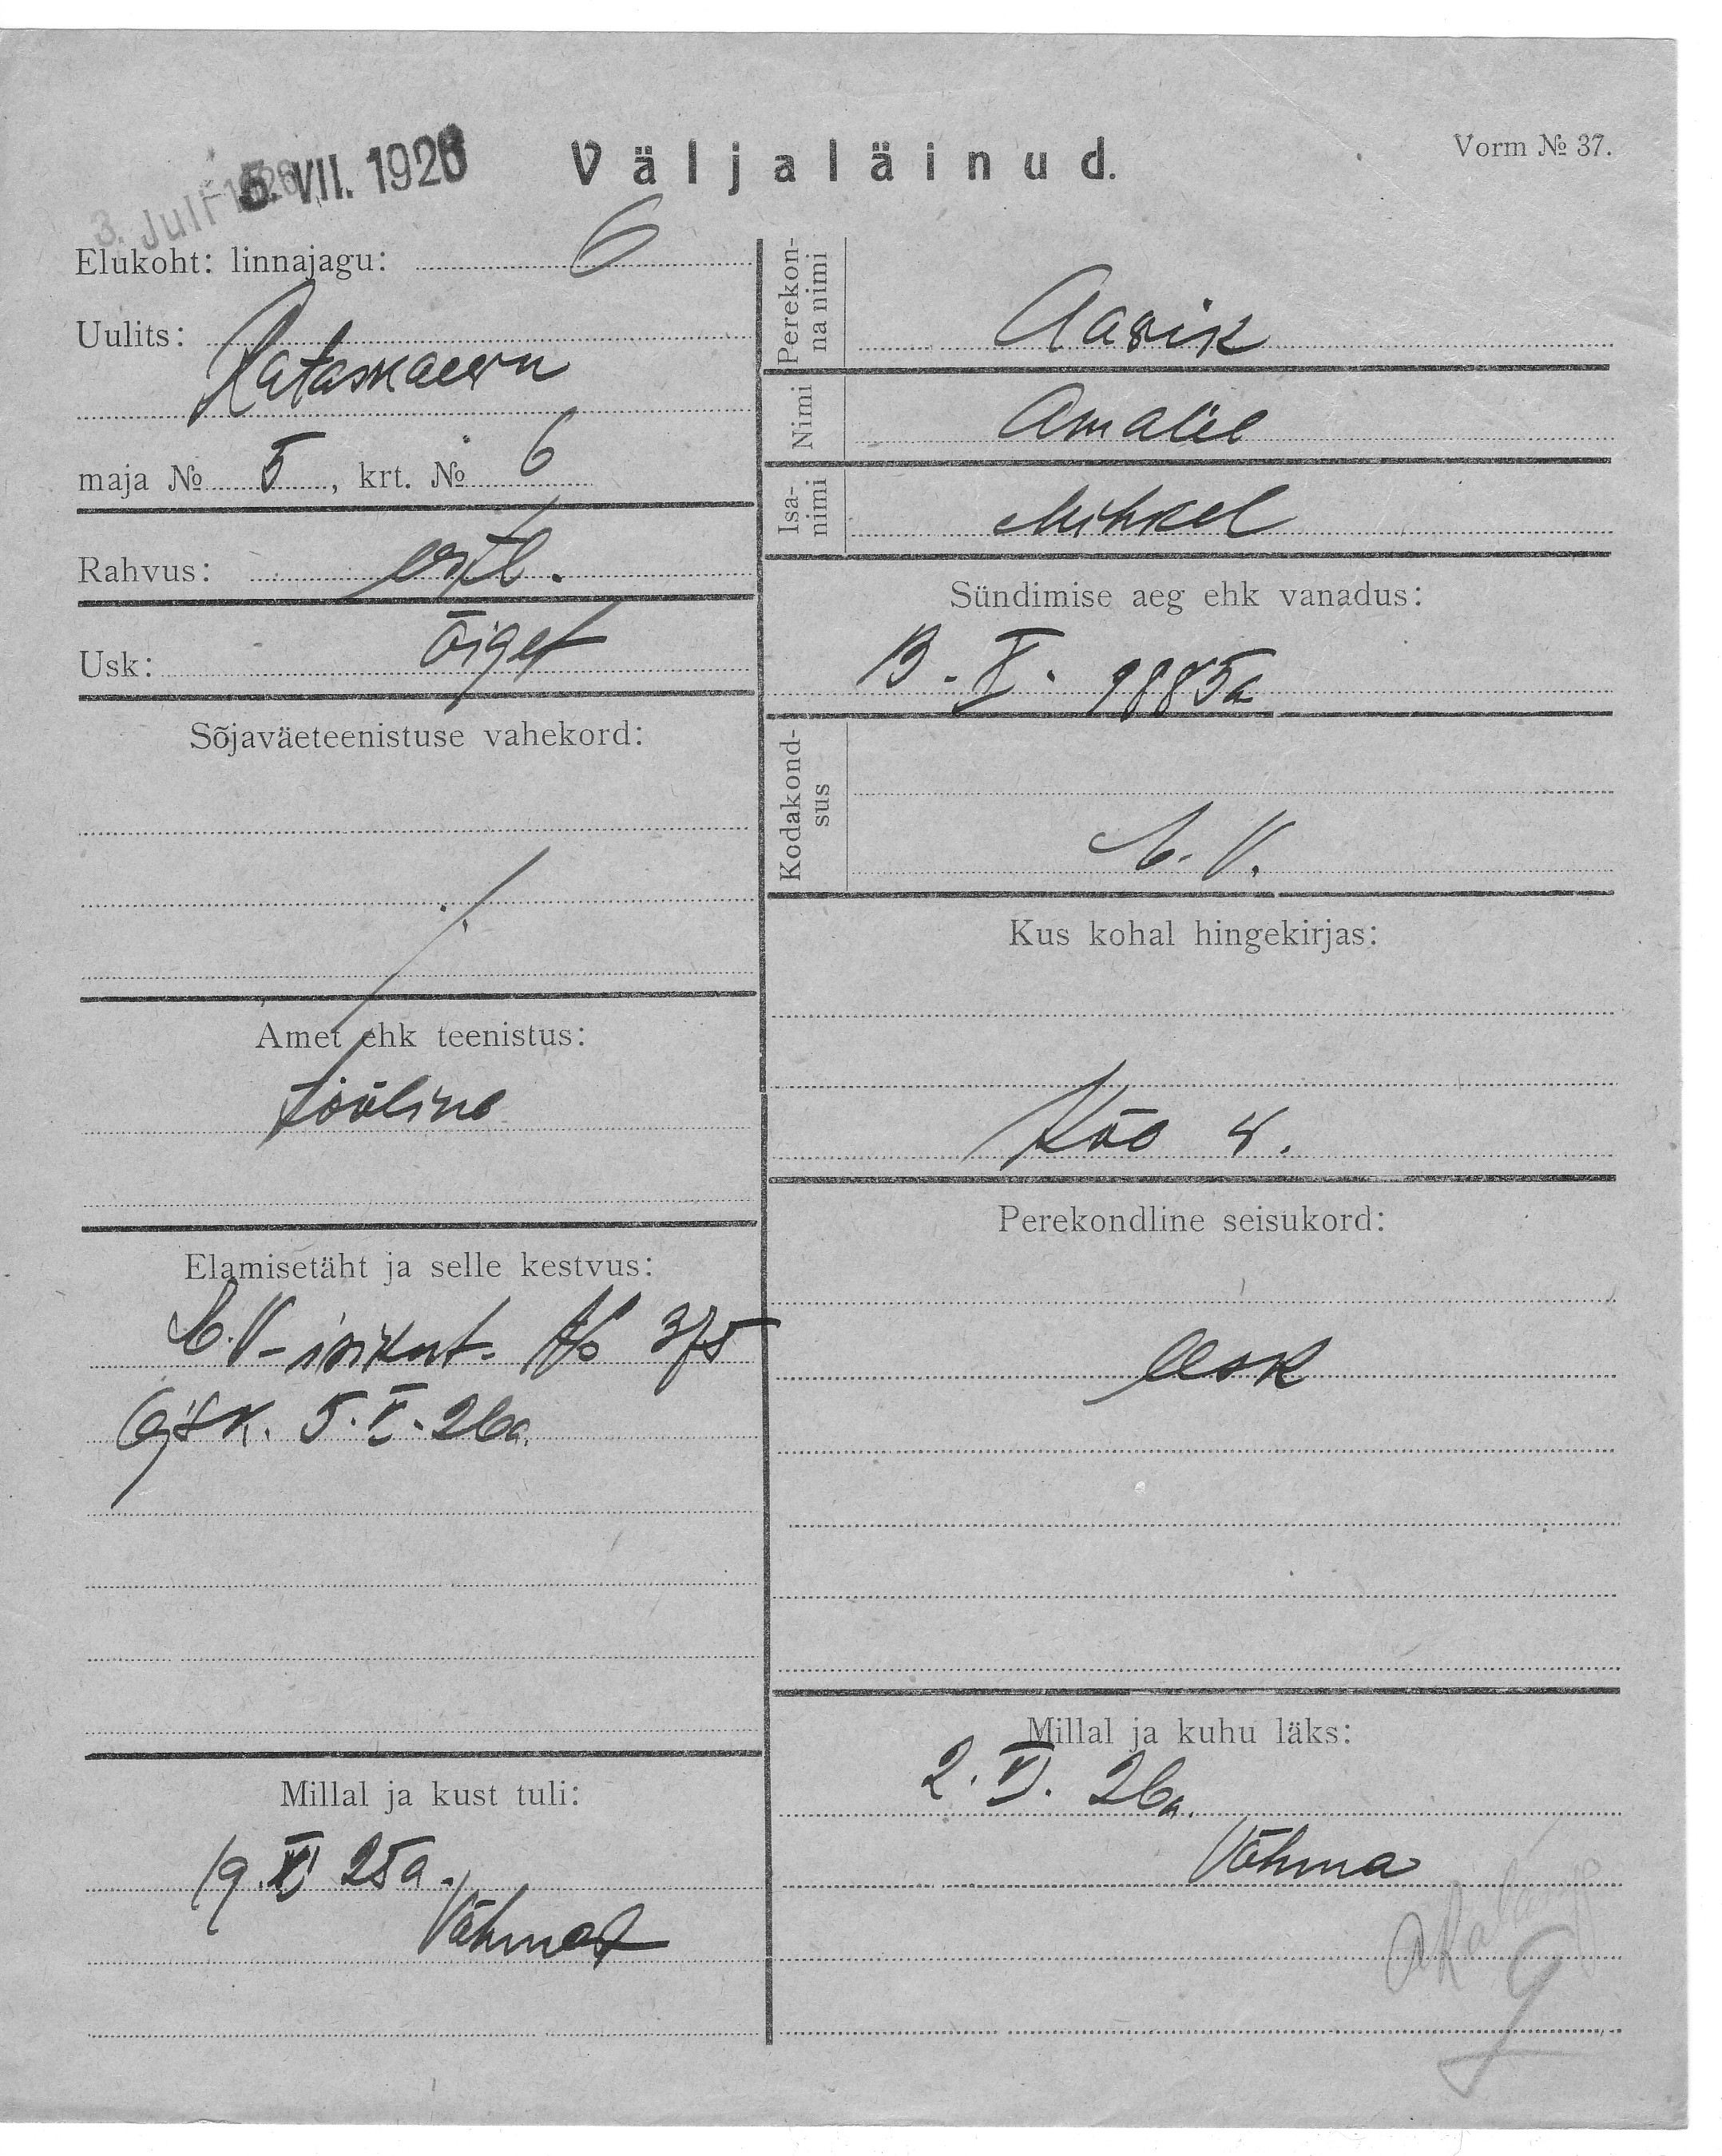 5. VII. 1926
3. Juli 1926
Väljaläinud.
Vorm № 37.
Elukoht: linnajagu: 6
Uulits:
Rataskaevu
maja № 5, krt. № 6
Rahvus: estl.
Usk: õiget
Sõjaväeteenistuse vahekord:
Amet ehk teenistus:
tööline
Elamisetäht ja selle kestvus:
E.V-isikut. № 375
5.V.26a.
Millal ja kust tuli:
19.XI 25a.
Võhmast
Perekonna nimi
Aasik
Nimi
Amalie
Isanimi
Mihkel
Sündimise aeg ehk vanadus:
13. X. 1885a
Kodakondsus
E.V.
Kus kohal hingekirjas:
Kõo v.
Perekondline seisukord:
lesk
Millal ja kuhu läks:
2. VI. 26a.
Võhma